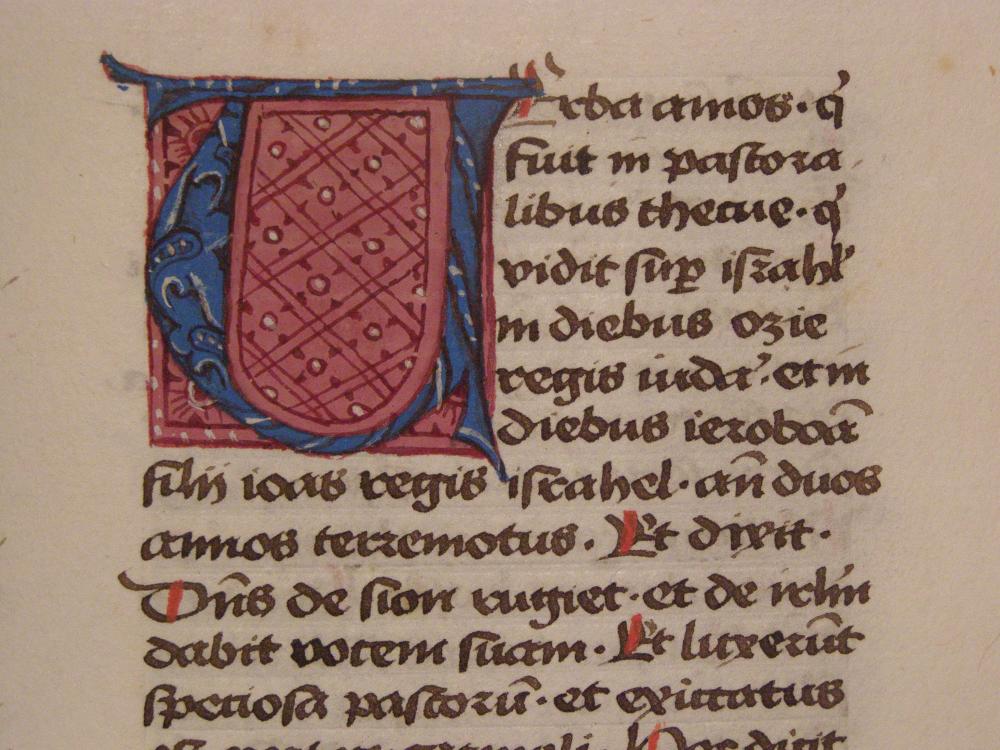 VErba amos · q̄
fuit in pastora
libus thecue · q̄
vidit sup̱ israhl̓
in diebus ozie
regis iuda · et in
diebus ieroboā
filii ioas regis israhel · an̄ duos
annos terremotus . Et dixit ·
Dn̄s de sion rugiet · et de irl̄m
dabit vocem suam · Et luxerūt
speciosa pastorū · et exiccatus